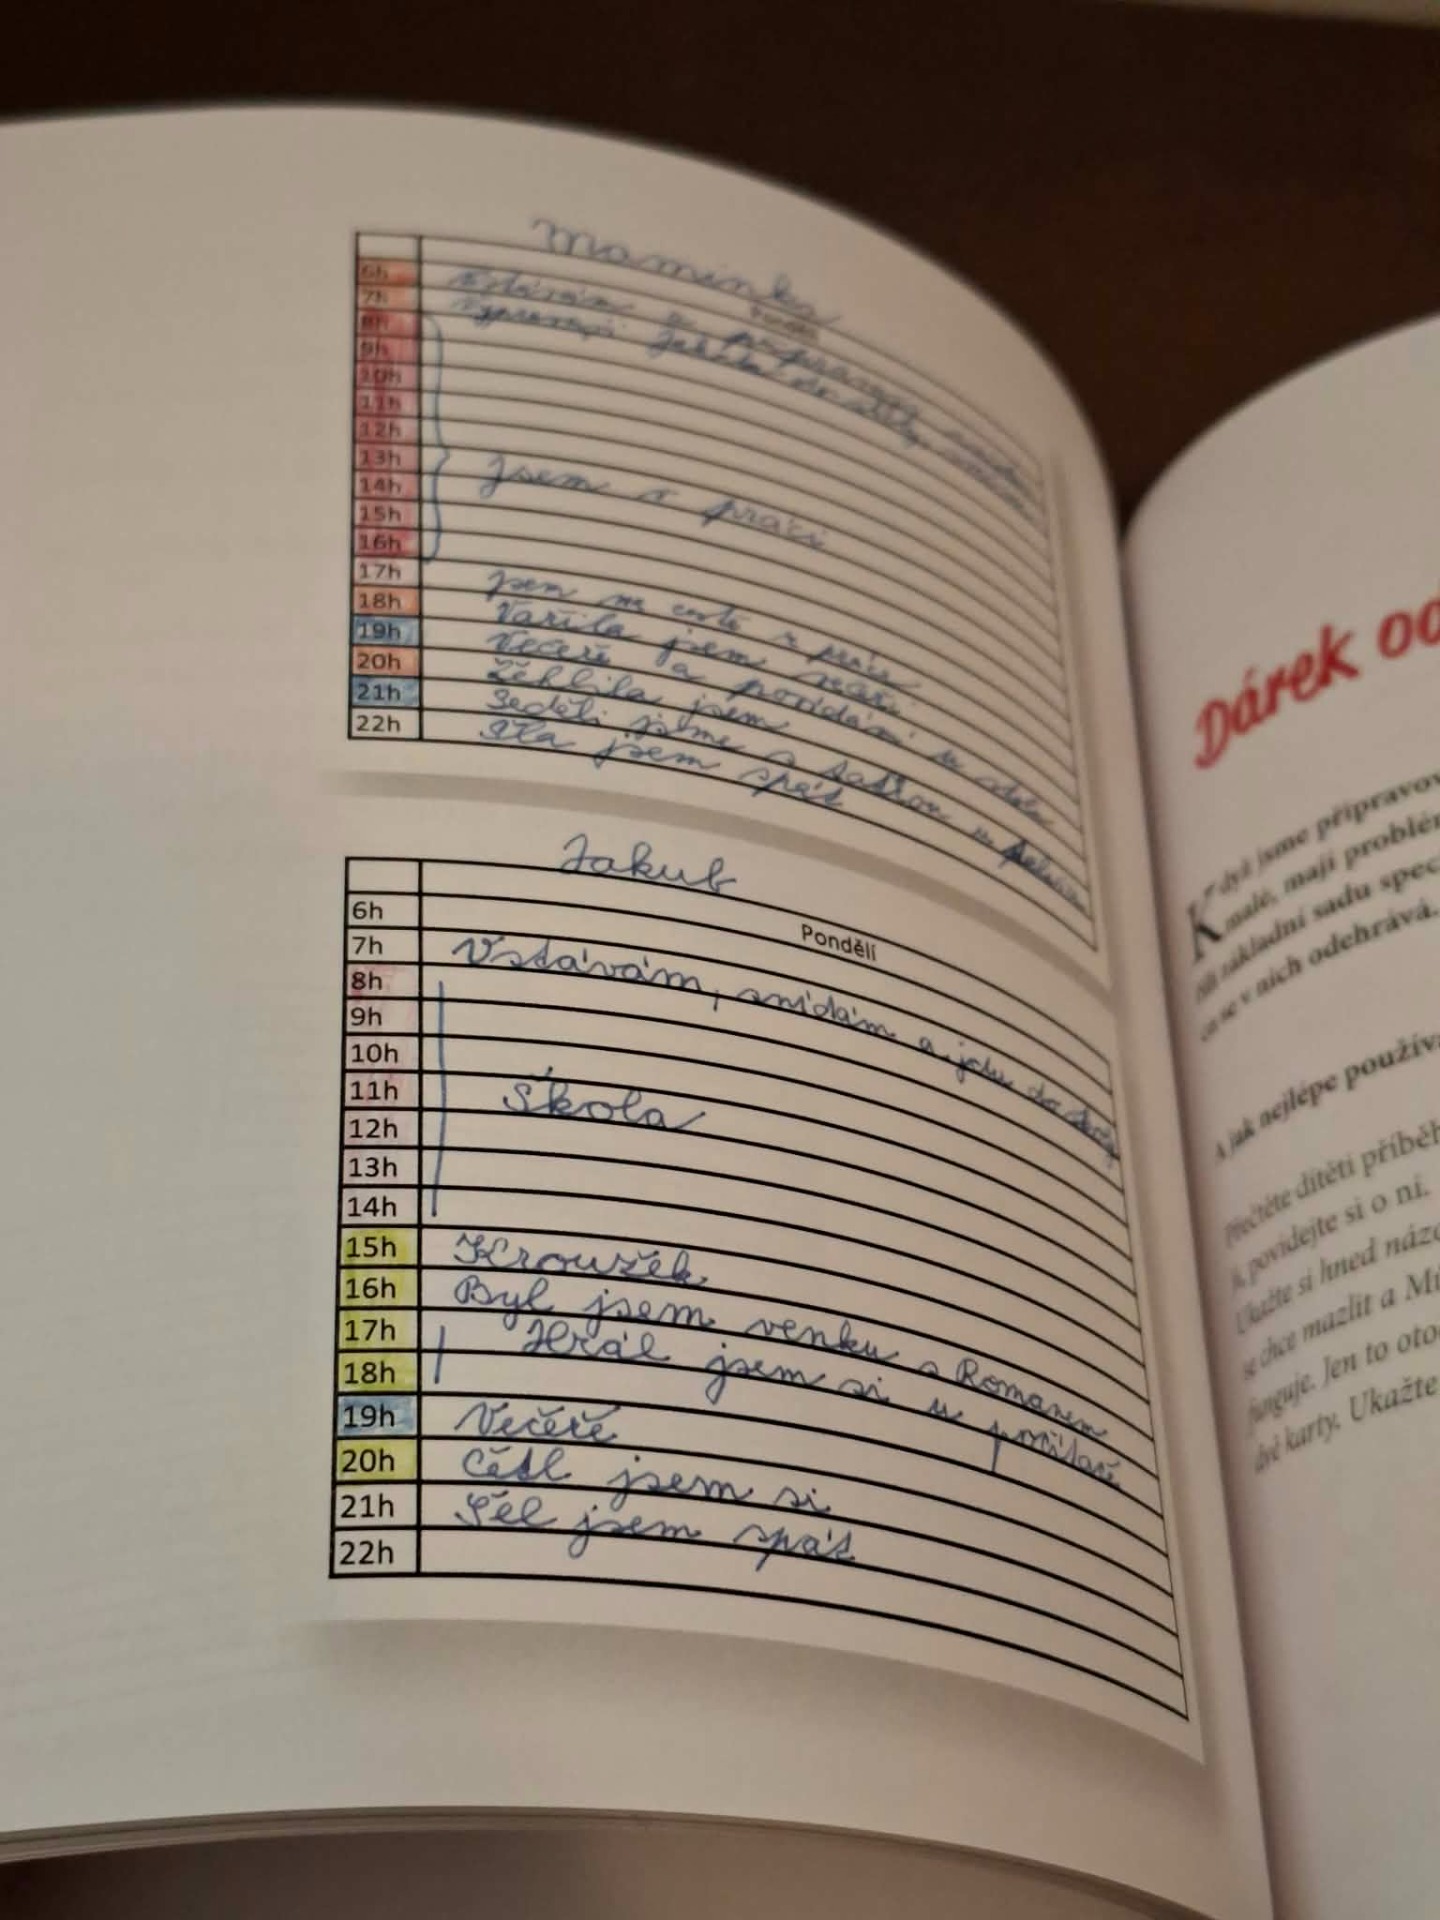 Maminka
Pondělí
6h Vstávám a připravuji
7h Vypravuji Jakuba do školy,
8h
9h
10h
11h
12h
13h Jsem v práci
14h
15h
16h
17h Jsem na cestě z práce
18h Vařila jsem večeři
19h Večeře a povídání u stolu
20h Žehlila jsem
21h Seděli jsme s taťkou u
22h Šla jsem spát
Jakub
Pondělí
6h
7h Vstávám, snídám a jdu do školy
8h
9h
10h
11h Škola
12h
13h
14h
15h Kroužek
16h Byl jsem venku s Romanem
17h Hrál jsem si u počítače
18h
19h Večeře
20h Četl jsem si
21h Šel jsem spát
22h
Dárek od
Když jsme připravov
malé, mají problém
základní sadu spec
se v nich odehrává.
A jak nejlépe používa
Přečtěte dítěti příběh
povídejte si o ní.
Ukažte si hned názo
se chce mazlit a Mí
funguje. Jen to oto
dvě karty. Ukažte